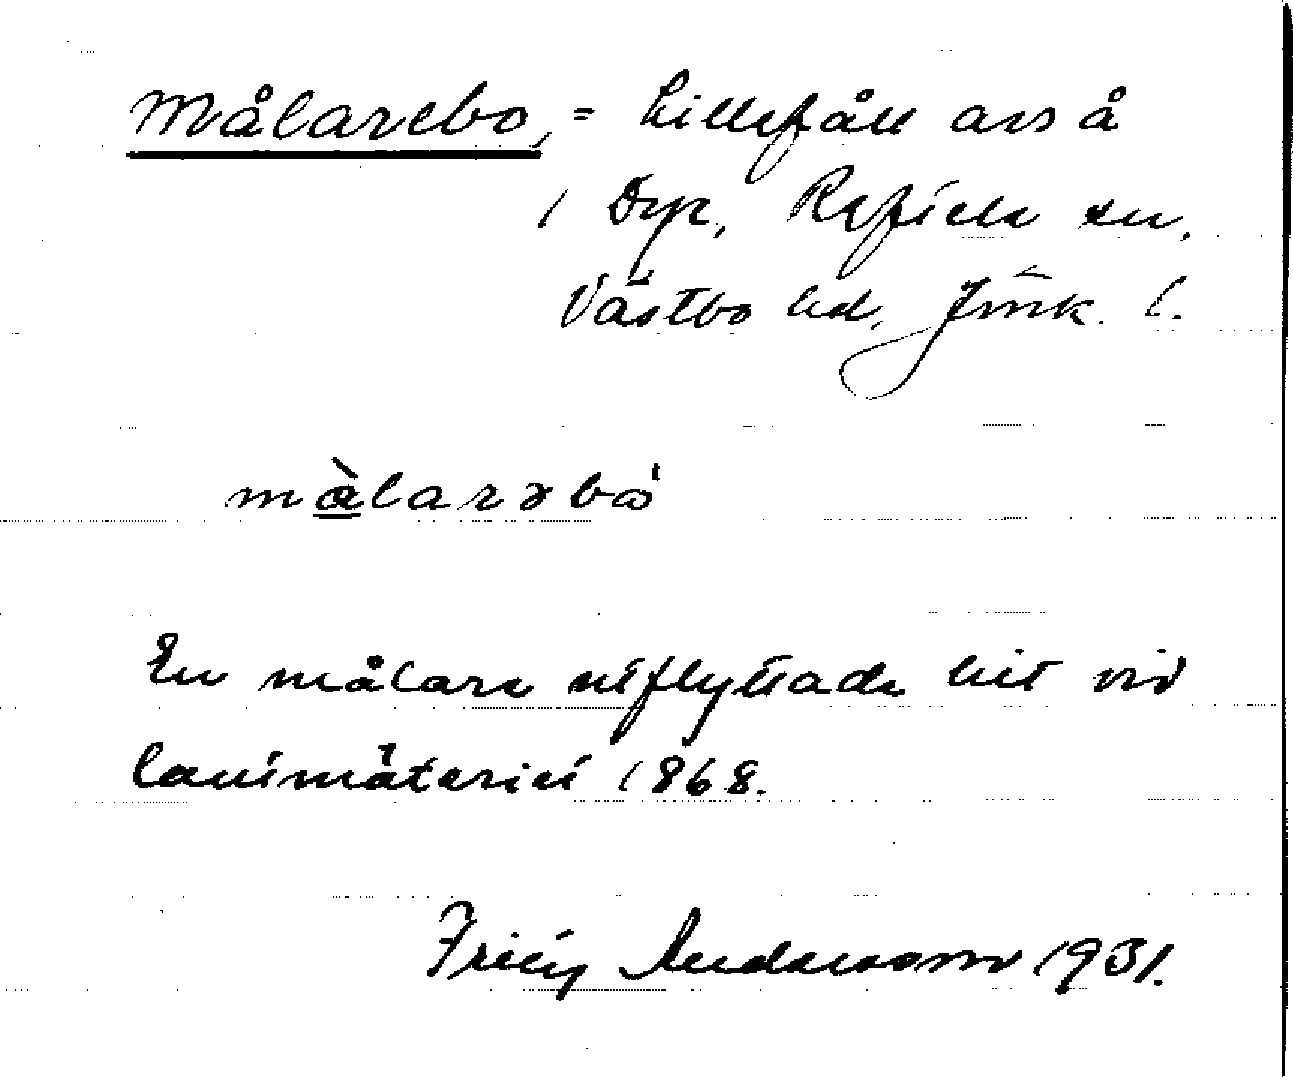 Målarebo, = Lillefåll avs å
1 Dyr, Reftele sn,
Västbo hd, Jönk. l.
mὰlarəbω̍
En målare utflyttade hit vid
lantmäteriet 1868.
Fritiof Andersson 1931.